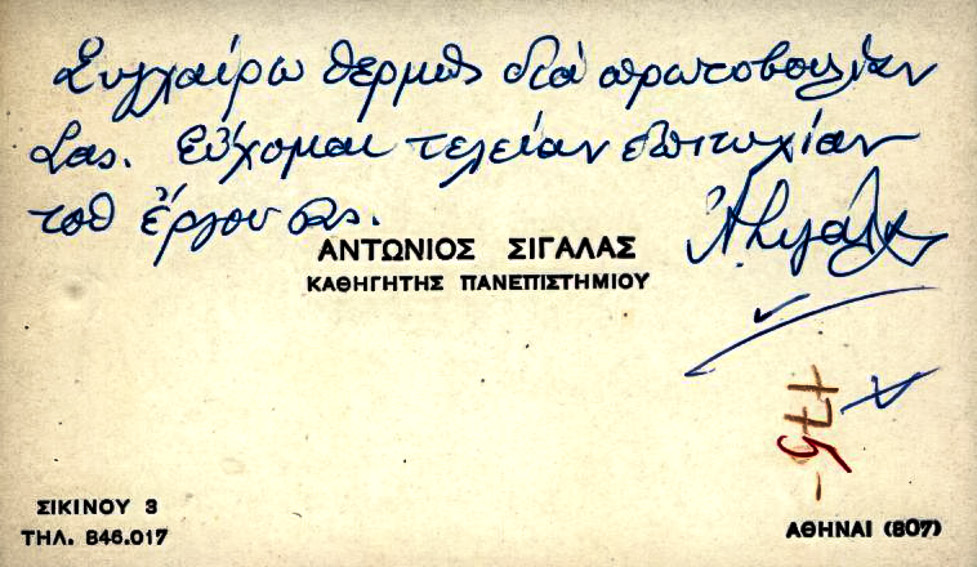 Συγχαίρω θερμῶς διά πρωτοβουλίαν
Σας. Εὔχομαι τελείαν ἐπιτυχίαν
τοῦ ἔργου σας.
Α. Σιγάλας
ΑΝΤΩΝΙΟΣ ΣΙΓΑΛΑΣ
ΚΑΘΗΓΗΤΗΣ ΠΑΝΕΠΙΣΤΗΜΙΟΥ
175-
ΣΙΚΙΝΟΥ 3
ΤΗΛ. 846.017
ΑΘΗΝΑΙ (807)